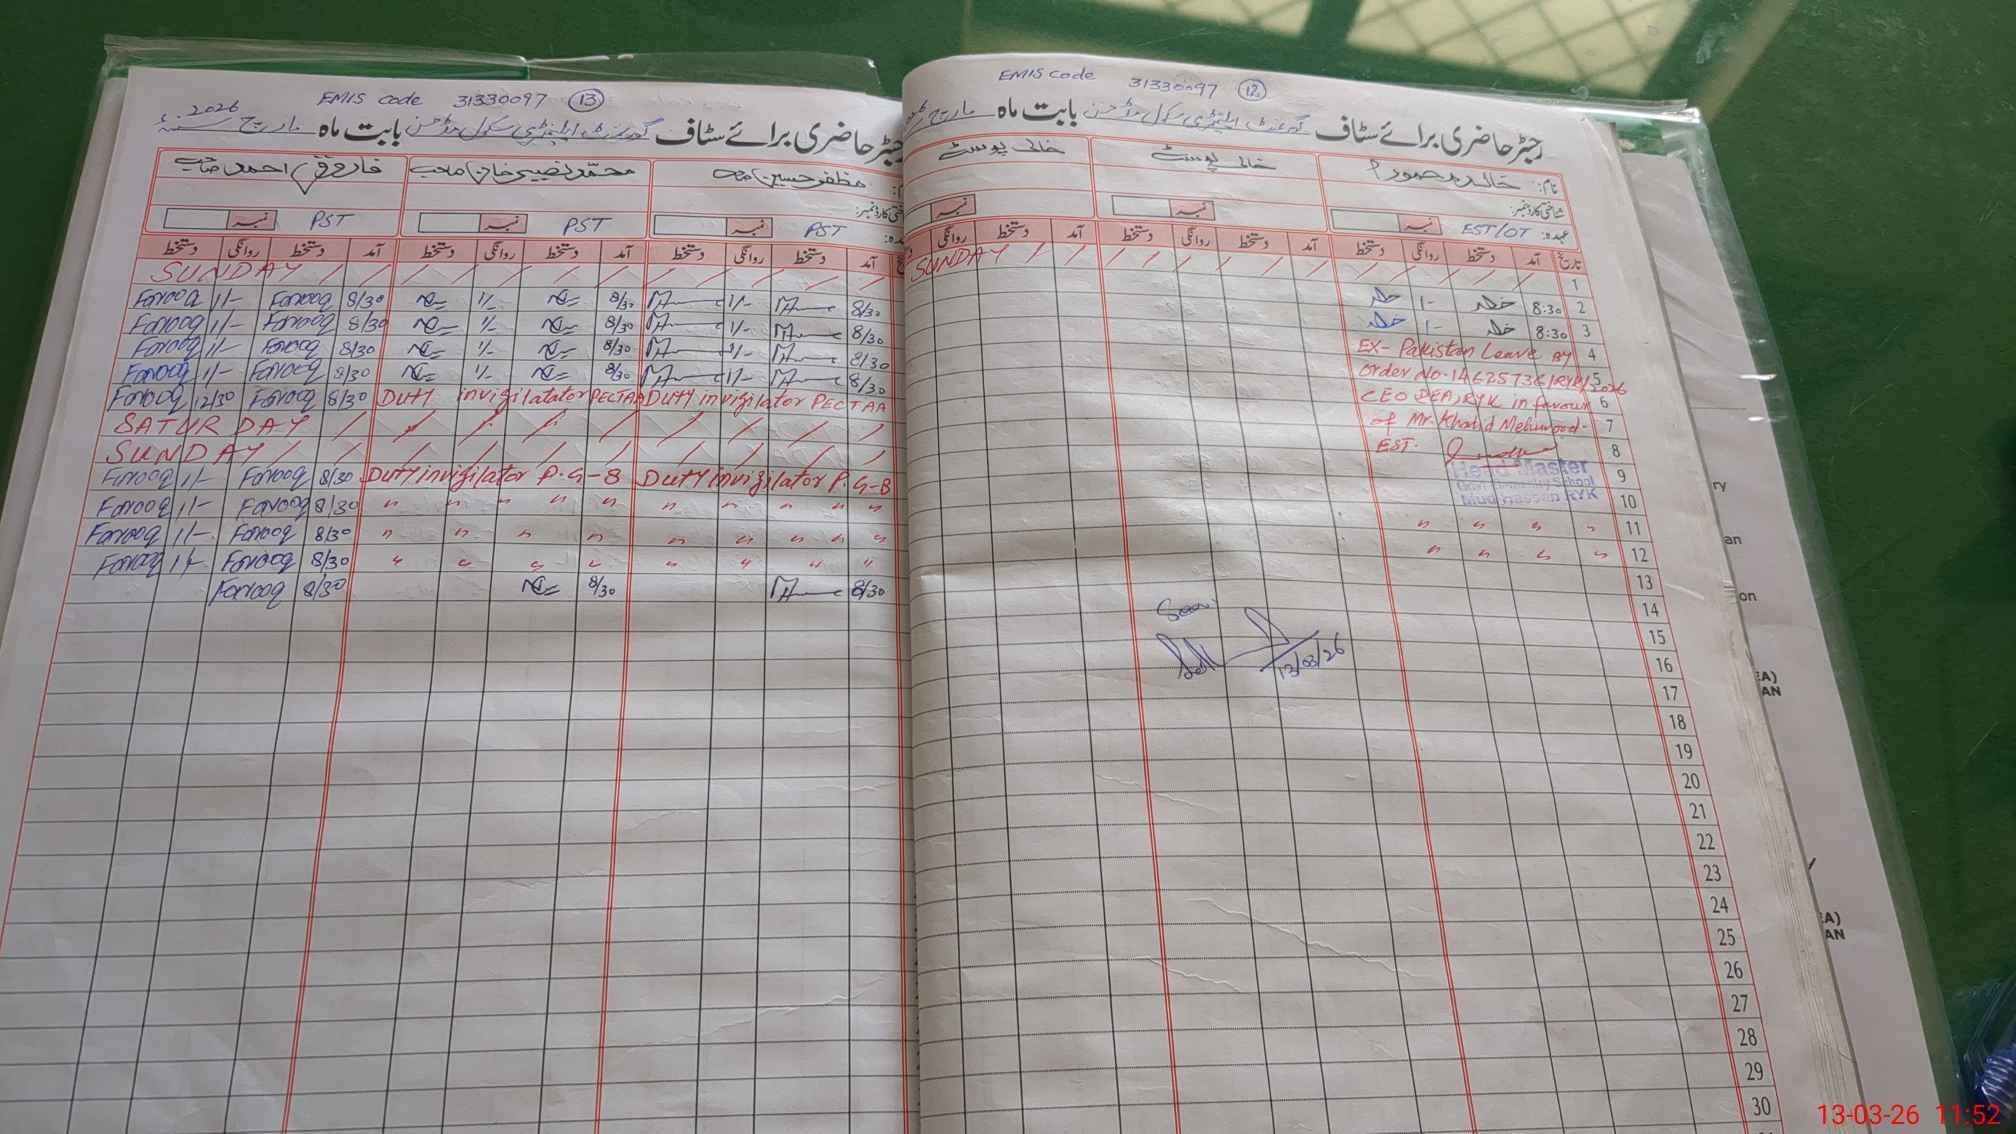 EMIS code 31330097 (12)
رجسٹر حاضری برائے سٹاف گورنمنٹ ایلیمنٹری سکول مڈحسن بابت ماہ مارچ
نام: خالد محمود خالی پوسٹ خالی پوسٹ
شناختی کارڈ نمبر:
عہدہ: EST/OT نمبر نمبر نمبر
تاریخ آمد دستخط روانگی دستخط آمد دستخط روانگی دستخط آمد دستخط روانگی
1 SUNDAY
2 8:30 1/-
3 8:30 1/-
4 EX-Pakistan Leave By
5 order No. 1462573C/RYK/2026
6 CEO DEA, RYK in favour
7 of Mr. Khalid Mehmood-
8 EST.
9 Head Master
Govt. Elementary School
10 Mud Hassan RYK
11 " " " "
12 " " " "
13
14 Seen
15
16 13/03/26
17
18
19
20
21
22
23
24
25
26
27
28
29
30
EMIS code 31330097 (13)
رجسٹر حاضری برائے سٹاف گورنمنٹ ایلیمنٹری سکول مڈحسن بابت ماہ مارچ سنہ 2026ء
مظفر حسین صاحب محمد نصیر خان صاحب فاروق احمد صاحب
PST نمبر PST نمبر PST نمبر
آمد دستخط روانگی دستخط آمد دستخط روانگی دستخط آمد دستخط روانگی دستخط
SUNDAY
8/30 1/- 8/30 1/- 8/30 Farooq 1/- Farooq
8/30 1/- 8/30 1/- 8/30 Farooq 1/- Farooq
8/30 1/- 8/30 1/- 8/30 Farooq 1/- Farooq
8/30 1/- 8/30 1/- 8/30 Farooq 1/- Farooq
Farooq 12/30 Farooq 8/30 DUTY invigilatator PECTAA DUTY invigilator PECTAA
SATURDAY
SUNDAY
Farooq 1/- Farooq 8/30 Duty invigilator P.G-8 Duty invigilator P.G-8
Farooq 1/- Farooq 8/30 " " " " " " " " "
Farooq 1/- Farooq 8/30 " " " " " " " " "
Farooq 1/- Farooq 8/30 " " " " " " " "
Farooq 8/30 8/30 8/30
ry
an
on
EA)
AN
EA)
AN
13-03-26 11:52